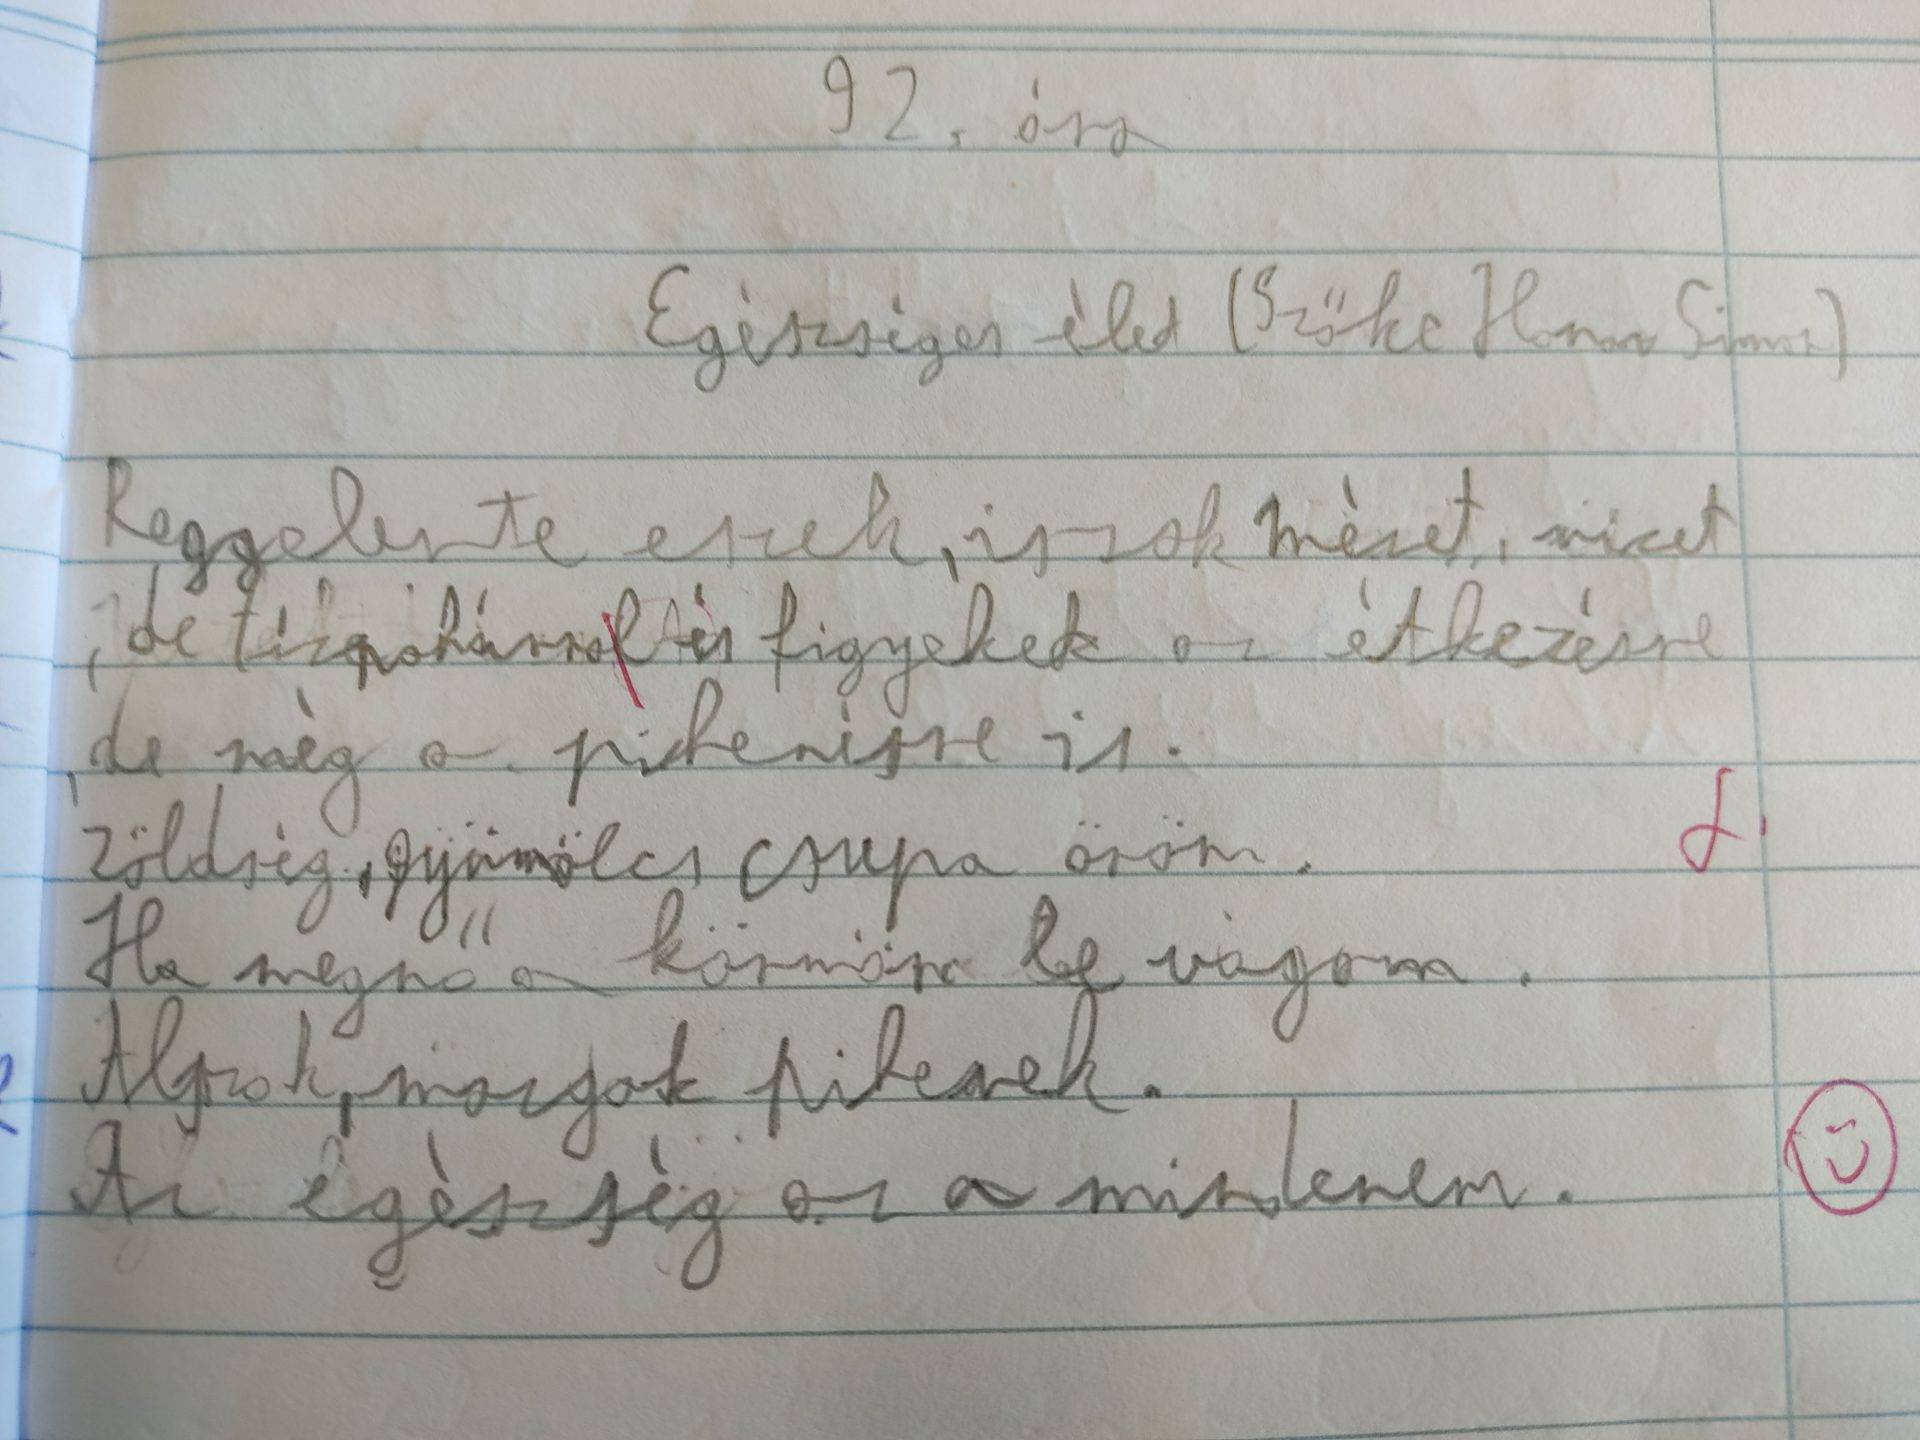 92. óra
Egészséges élet (Szőke Simon)
Reggelente eszek, iszok mézet, vizet
, de tízpohárral és figyekek az étkezésre
, de még a pihenésre is.
zöldség, gyümölcs csupa öröm.
Ha megnő a körmöm le vágom.
Alszok, mozgok pihenek.
Az egészség az a mindenem.